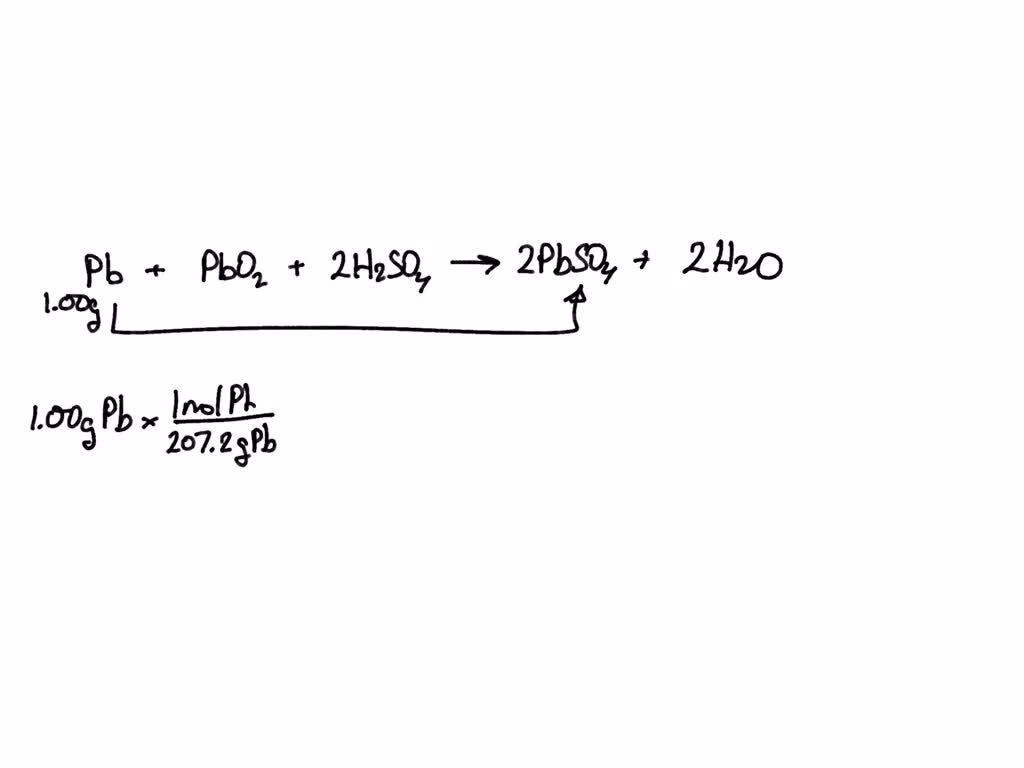 Pb + PbO₂ + 2H₂SO₄ → 2PbSO₄ + 2H₂O
1.00g
1.00g Pb × 1mol Pb
207.2g Pb